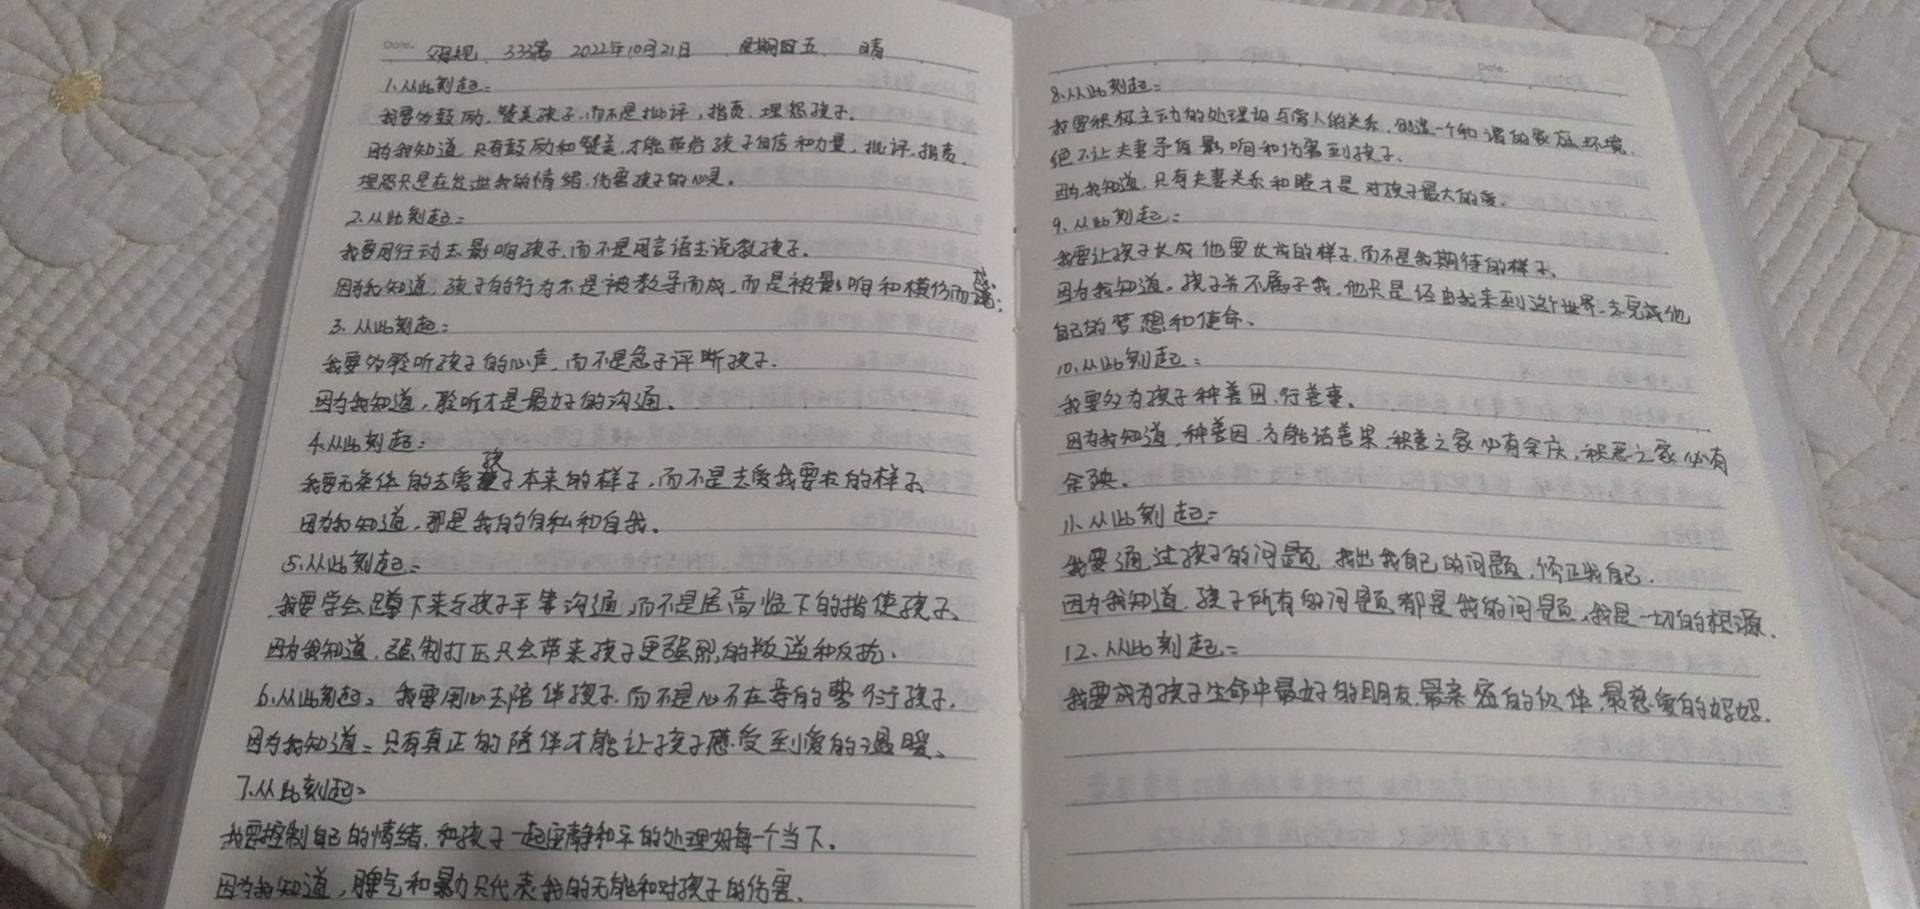 Date. 母规 333遍 2022年10月21日 星期五 晴
1.从此刻起:
我要多鼓励,赞美孩子,而不是批评,指责,埋怨孩子.
因为我知道,只有鼓励和赞美,才能带给孩子自信和力量,批评,指责,
埋怨只是在发泄我的情绪,伤害孩子的心灵.
2.从此刻起:
我要用行动去影响孩子,而不是用言语去说教孩子.
因为我知道,孩子的行为不是被教导而成,而是被影响和模仿而成;
3.从此刻起:
我要多聆听孩子的心声,而不是急于评断孩子.
因为我知道,聆听才是最好的沟通.
4.从此刻起:
我要无条件的去爱孩子本来的样子,而不是去爱我要求的样子、
因为我知道,那是我的自私和自我.
5.从此刻起:
我要学会蹲下来与孩子平等沟通,而不是居高临下的指使孩子、
因为我知道,强制打压只会带来孩子更强烈的叛逆和反抗.
6.从此刻起:我要用心去陪伴孩子,而不是心不在焉的敷衍孩子.
因为我知道:只有真正的陪伴才能让孩子感受到爱的温暖、
7.从此刻起:
我要控制自己的情绪,和孩子一起安静和平的处理好每一个当下.
因为我知道,脾气和暴力只代表我的无能和对孩子的伤害.
Date.
8.从此刻起:
我要积极主动的处理好与爱人的关系,创造一个和谐的家庭环境.
绝不让夫妻矛盾影响和伤害到孩子.
因为我知道,只有夫妻关系和睦才是对孩子最大的爱.
9.从此刻起:
我要让孩子长成他要长成的样子,而不是我期待的样子、
因为我知道,孩子并不属于我,他只是经由我来到这个世界,去完成他
自己的梦想和使命、
10.从此刻起:
我要多为孩子种善因,行善事.
因为我知道,种善因,方能结善果,积善之家必有余庆,积恶之家必有
余殃.
11.从此刻起:
我要通过孩子的问题,找出我自己的问题,修正我自己.
因为我知道,孩子所有的问题都是我的问题,我是一切的根源.
12.从此刻起:
我要成为孩子生命中最好的朋友,最亲密的伙伴,最慈爱的妈妈.